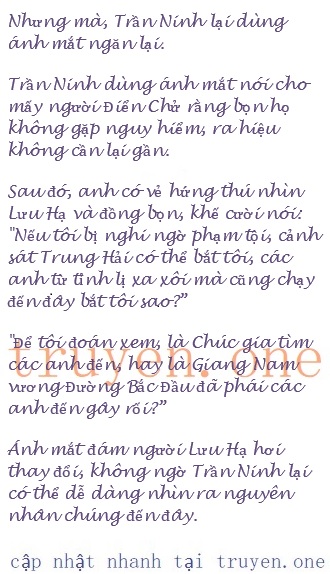 Nhưng mà, Trần Ninh lại dùng
ánh mắt ngăn lại.
Trần Ninh dùng ánh mắt nói cho
mấy người Điển Chử rằng bọn họ
không gặp nguy hiểm, ra hiệu
không cần lại gần.
Sau đó, anh có vẻ hứng thú nhìn
Lưu Hạ và đồng bọn, khẽ cười nói:
"Nếu tôi bị nghi ngờ phạm tội, cảnh
sát Trung Hải có thể bắt tôi, các
anh từ tỉnh lị xa xôi mà cũng chạy
đến đây bắt tôi sao?”
"Để tôi đoán xem, là Chúc gia tìm
các anh đến, hay là Giang Nam
vương Đường Bắc Đầu đã phái các
anh đến gây rối?”
truyen.one
Ánh mắt đám người Lưu Hạ hơi
thay đổi, không ngờ Trần Ninh lại
có thể dễ dàng nhìn ra nguyên
nhân chúng đến đây.
cập nhật nhanh tại truyen.one